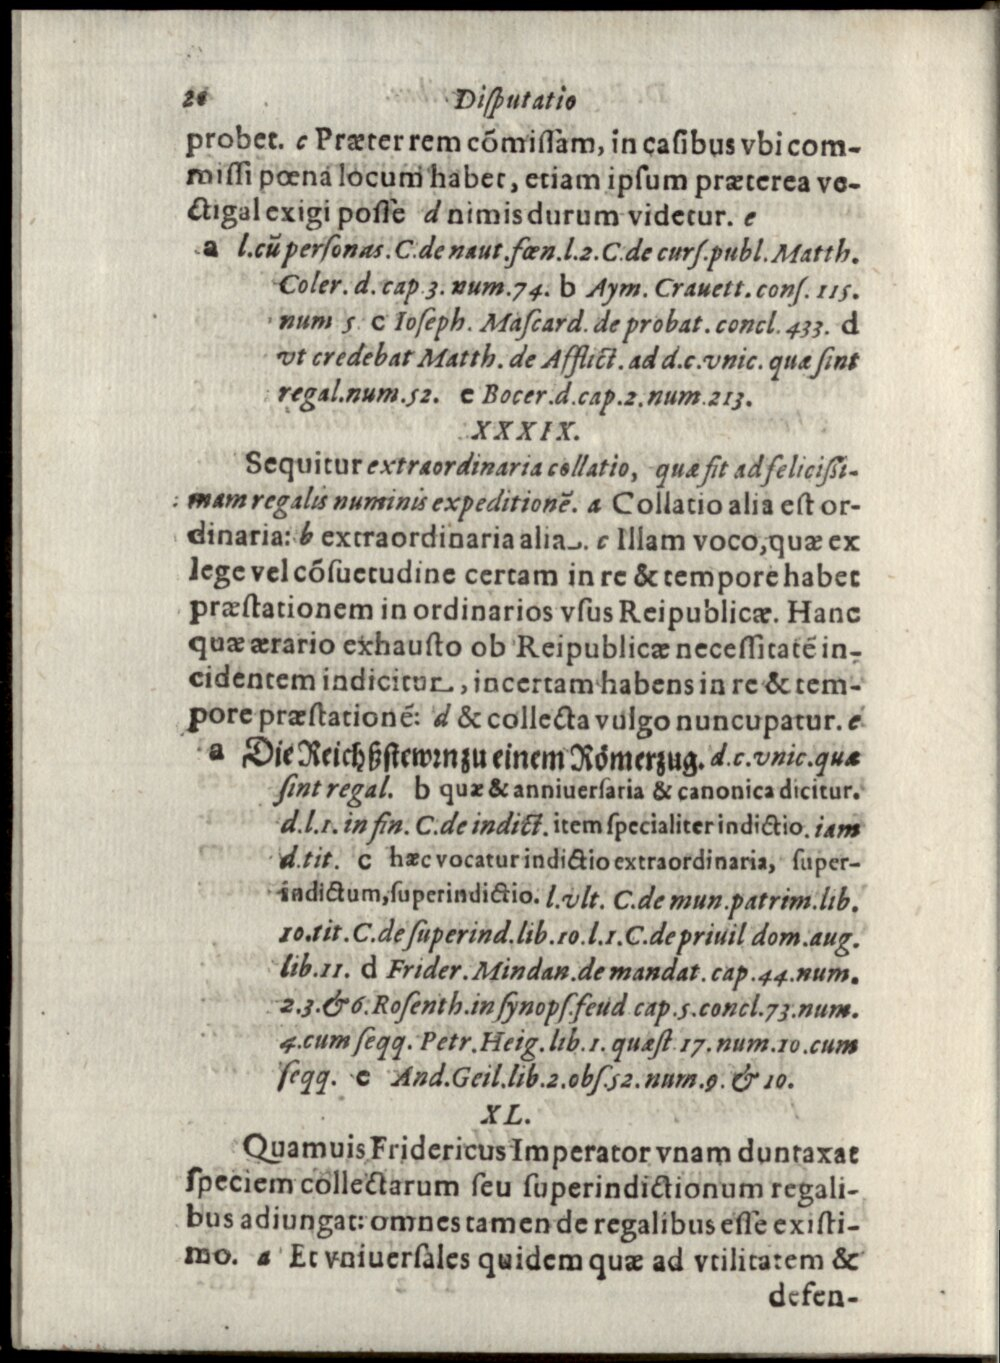 Disputatio
probet. c Præter rem cõmissam, in casibus vbi com-
missi pœna locum habet, etiam ipsum præterea ve-
ctigal exigi posse d nimis durum videtur. e
a l. cũ personas. C. de naut. fœn. l. 2. C. de curs. publ. Matth.
Coler. d. cap. 3. num. 74. b Aym. Crauett. cons. 115.
num 5 c Ioseph. Mascard. de probat. concl. 433. d
vt credebat Matth. de Afflict. ad d. c. vnic. quæ sint
regal. num. 52. e Bocer. d. cap. 2. num. 213.
XXXIX.
Sequitur extraordinaria collatio, quæ fit ad felicissi-
mam regalis numinis expeditionẽ. a Collatio alia est or-
dinaria: b extraordinaria alia. c Illam voco, quæ ex
lege vel cõsuetudine certam in re & tempore habet
præstationem in ordinarios vsus Reipublicæ. Hanc
quæ ærario exhausto ob Reipublicæ necessitatẽ in-
cidentem indicitur, incertam habens in re & tem-
pore præstationẽ: d & collecta vulgo nuncupatur. e
a Die Reichßstewrn zu einem Römerzug. d. c. vnic. quæ
sint regal. b quæ & anniuersaria & canonica dicitur.
d. l. 1. in fin. C. de indict. item specialiter indictio. iam
d. tit. c hæc vocatur indictio extraordinaria, super-
indictum, superindictio. l. vlt. C. de mun. patrim. lib.
10. tit. C. de superind. lib. 10. l. 1. C. de priuil dom. aug.
lib. 11. d Frider. Mindan. de mandat. cap. 44. num.
2. 3. & 6. Rosenth. in synops. feud cap. 5. concl. 73. num.
4. cum seqq. Petr. Heig. lib. 1. quæst 17. num. 10. cum
seqq. e And. Geil. lib. 2. obs. 52. num. 9. & 10.
XL.
Quamuis Fridericus Imperator vnam duntaxat
speciem collectarum seu superindictionum regali-
bus adiungat: omnes tamen de regalibus esse existi-
mo. a Et vniuersales quidem quæ ad vtilitatem &
defen-